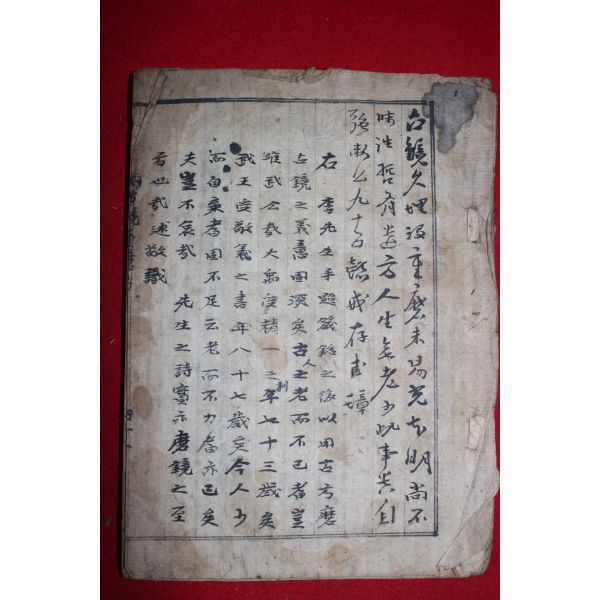 古鏡久埋没重磨未易光本明尚不
昧往哲有遺方人生無老少此事貴自
强衛公九十五懿戒存圭璋
右 李先生手題箴銘之後以用古方磨
古鏡之義意固深矣古人之老而不已者豈
唯武公哉大禹受精一之訓年七十三歲矣
武王受敬義之書年八十七歲矣今人少
而自棄者固不足云老而不力者亦已矣
夫豈不哀哉 先生之詩實亦磨鏡之至
言也哉逑敬識